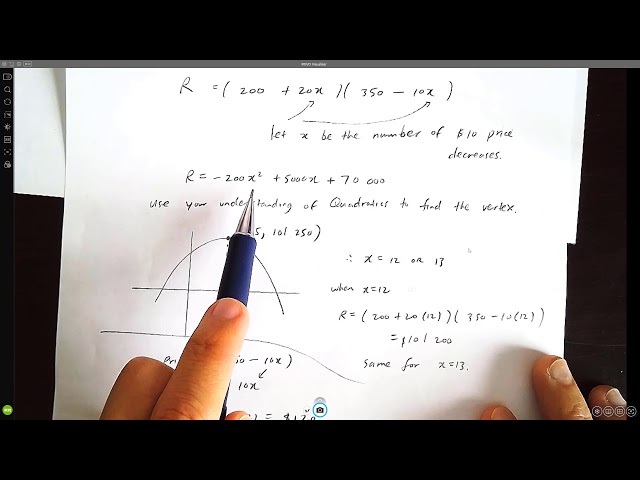 R = ( 200 + 20x )( 350 - 10x )
let x be the number of $10 price
decreases.
R = - 200x² + 5000x + 70 000
Use your understanding of Quadratics to find the vertex.
5, 101 250)
∴ x = 12 or 13
when x=12
R = ( 200 + 20 (12) ) ( 350 - 10(12) )
= $101 200
same for x=13.
- 10x )
10x